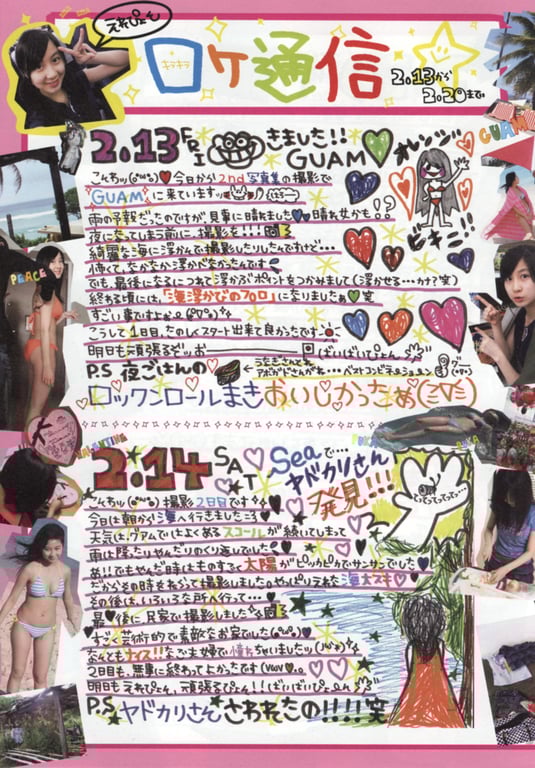 えれぴょん
キラキラ
ロケ通信
2.13から
2.20まで。
2.13 FRI きました!!
GUAM
オレンジ
GUAM
ビキニ!!
こんちわッ(o^ω^o)♥今日から2nd写真集の撮影で
"GUAM"に来ていますッ
雨の予報だったのですが、見事に晴れました♥晴れ女かも!?
夜になってしまう前に、撮影を!!!
綺麗な海に浮かんで撮影したりしたんですけど…
怖くて、なかなか浮かべなかったんです
でも、最後になるにつれて浮かぶポイントをつかみまして(浮かせる…カナ?笑)
終わる頃には、「海浮かびのプロ」になりましたぁ♥笑
すごい事ですよぉ。
こうして1日目、たのしくスタート出来て良かったです
明日も頑張るぞッお
ばいばいぴょん
PEACE
P.S 夜ごはんの
うなぎさんとね
アボカドさんがね…ベストコンビネーション
グー
ロックンロールまきおいしかったぁ(≧∇≦)
VALENTINE
2.14 SAT
Seaで…
ヤドカリさん
発見!!!
てってってってって…
こんちわッ(o^ω^o)撮影2日目です
今日は朝から海へ行きましたこ
天気は、グアムではよくあるスコールが続いてしまって
雨は降たりやんだりのくり返しでした
あ!!でもやんだ時はものすごく太陽がピッカピカでサンサンでした
だからその時をねらって撮影しましたのやっぱりこてれな海大スキ♥
その後は、いろいろな所へ行って…♥
最後に民家で撮影しました
すごく芸術的で素敵なお家でした(o^ω^o)
なんともナイス!!なご夫婦で憧れちゃいましたッ
2日目も、無事に終わってよかったです(VωV)♥。
明日もえれぴょん、頑張るぴょん!!ばいばいぴょん
P.S ヤドカリさんさわれたの!!!!笑